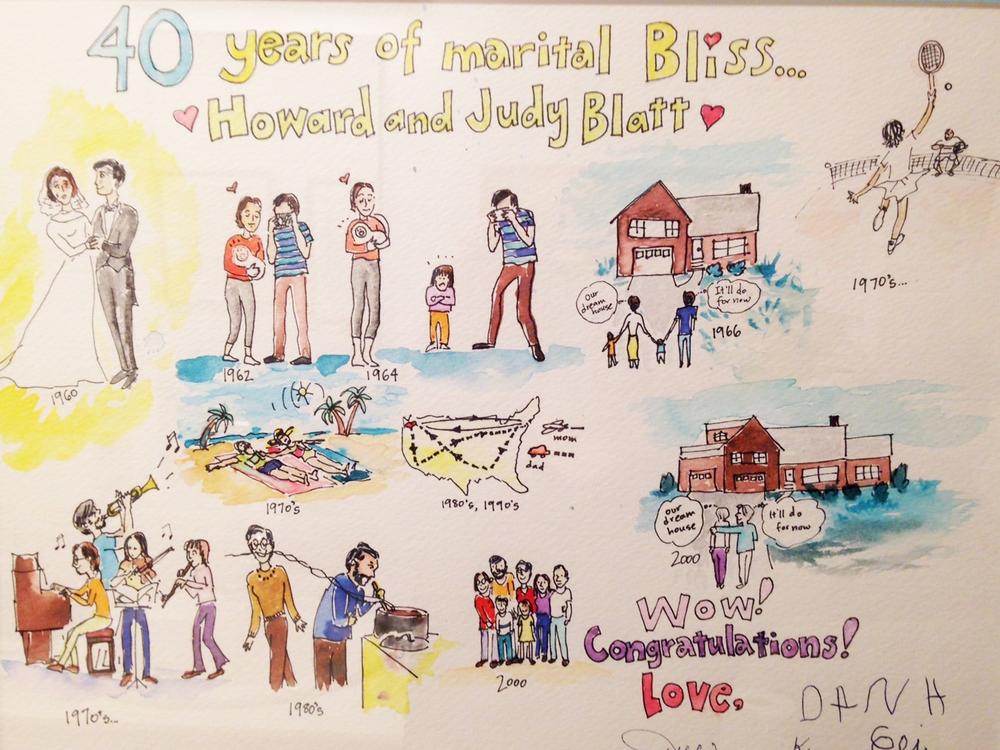 40 years of marital Bliss...
Howard and Judy Blatt
1960
1962
1964
Our
dream
house
It'll do
for now
1966
1970's...
1970's
mom
dad
1980's, 1990's
our
dream
house
It'll do
for now
2000
1970's...
1980's
2000
Wow!
Congratulations!
Love,